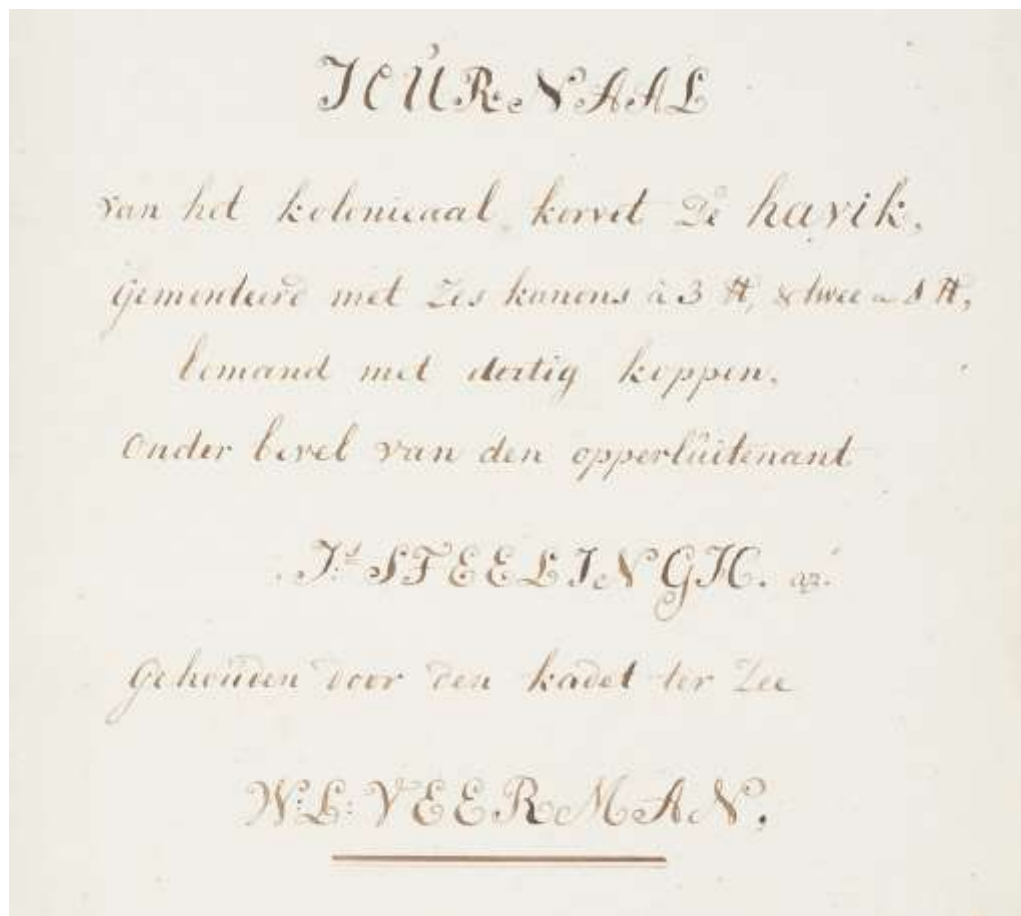 JOURNAAL
van het koloniaal korvet De havik,
Gemonteerd met Zes kanons à 3 ℔, & twee a 1 ℔,
bemand met dertig koppen.
Onder bevel van den opperluitenant
J.s STEELINGH.
Gehouden door den kadet ter Zee
W: L: VEERMAN.